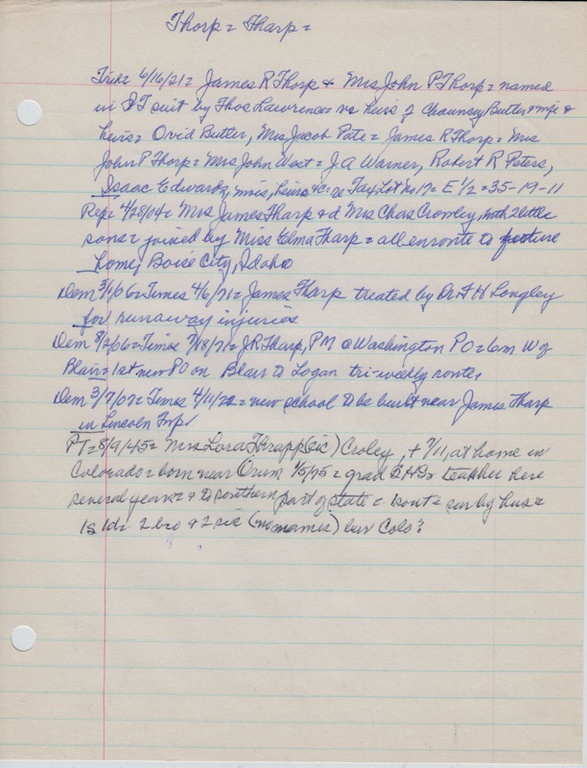 Thorp = Tharp =
Trib = 6/16/21 = James R Thorp & Mrs John P Thorp = named
in QT suit by Thos Lawrence = vs heirs of Chauncey Butler & wife &
heirs = Ovid Butler, Mrs Jacob Pate = James R Thorp = Mrs
John P Thorp = Mrs John West = J A Warner, Robert R Peters,
Isaac Edwards, heirs &c re Tax Lot No 17 = E 1/2 = 35-19-11
Rep = 4/28/04 = Mrs James Tharp & d Mrs Chas Crowley, with 2 little
sons = joined by Miss Elma Tharp = all enroute to future
home, Boise City, Idaho
Dem 3/1/06 = Times 4/6/71 = James Tharp treated by Dr A H Longley
for runaway injuries
Dem 8/2/06 = Times 7/18/71 = J R Tharp, PM @ Washington PO = 6m W of
Blair = 1st new PO on Blair to Logan tri-weekly route,
Dem 3/7/07 = Times 4/11/72 = new school to be built near James Tharp
in Lincoln Twp
PT = 8/9/45 = Mrs Lora Thrapp (sic) Croley, + 7/11, at home in
Colorado = born near Orum 1/5/75 = grad BHS = teacher here
several years & to southern part of state = sur by hus =
1s 1d = 2 bro & 2 sis (no names) bur Colo?